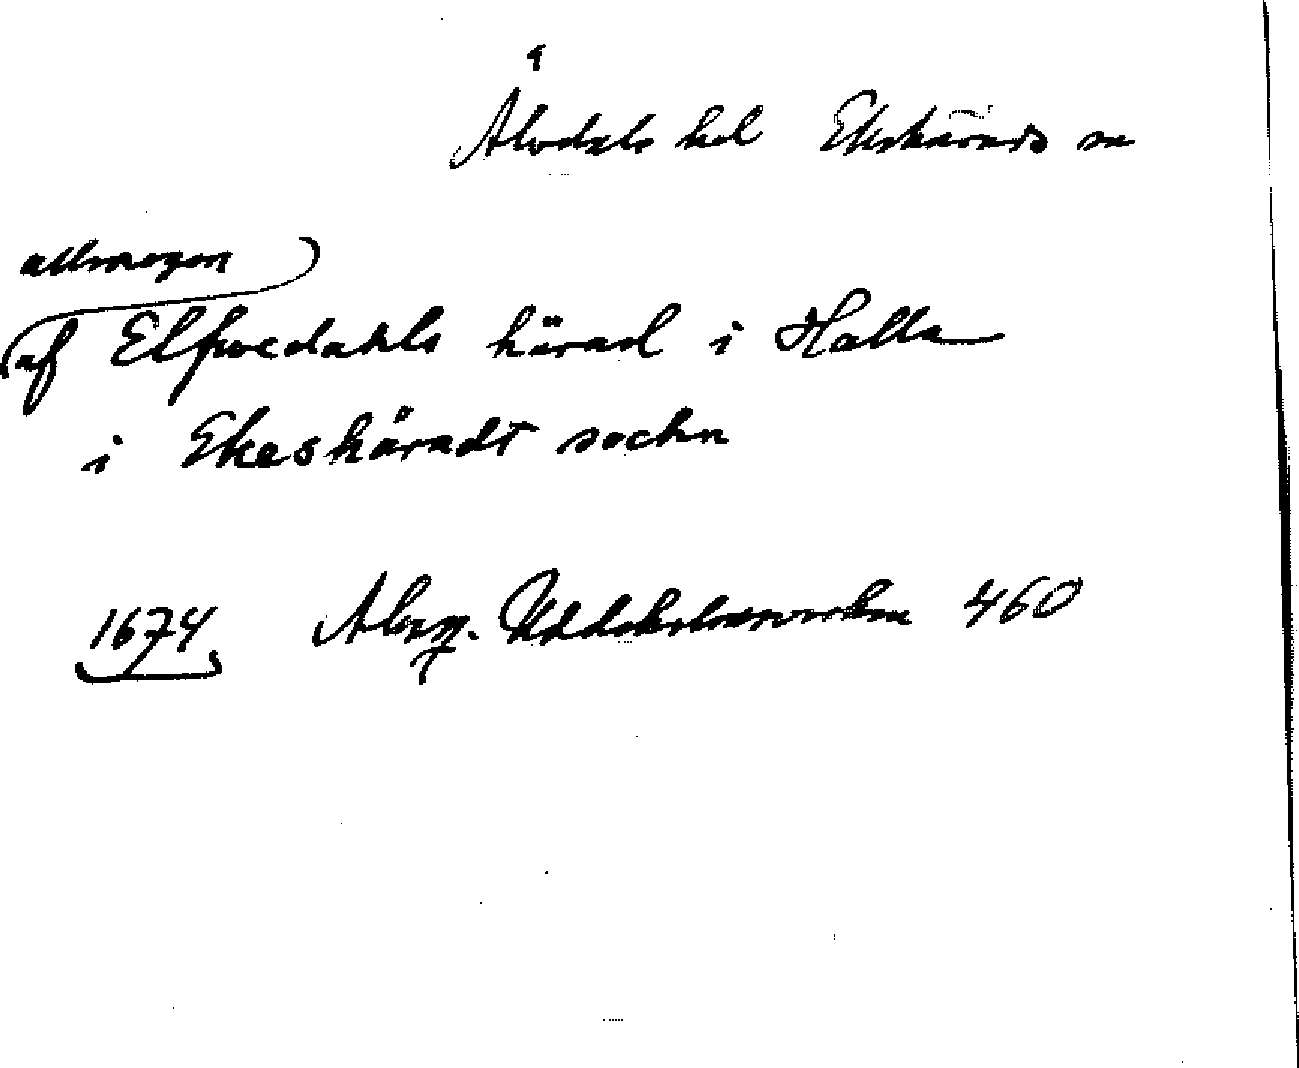 Älvdals hd Ekshärads sn
allmogen
af Elfwedahls härad i Halla
i Ekeshäradt sochn
1674 Almq. Uddeholmsverken 460